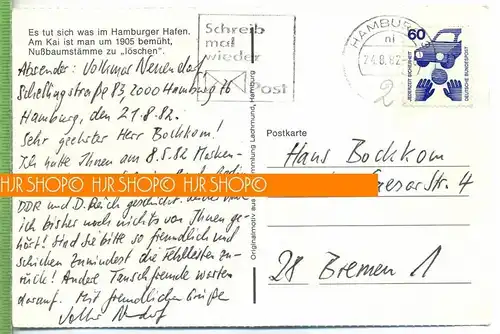 Es tut sich was im Hamburger Hafen.
Am Kai ist man um 1905 bemüht,
Nußbaumstämme zu „löschen“.
Schreib
mal
wieder
Post
HAMBURG
ni
24.8.82
2
60
JEDERZEIT SICHERHEIT
DEUTSCHE BUNDESPOST
Absender: Volkmar Neuendorf
Schellingstraße 83, 2000 Hamburg 76
Hamburg, den 21.8.82.
Sehr geehrter Herr Bockkom!
Ich hatte Ihnen am 8.5.82 Marken-
HJR SHOP© HJR SHOP© HJR SHOP©
DDR und D. Reich geschickt.
ich bisher noch nichts von Ihnen ge-
hört! Sind Sie bitte so freundlich und
schicken zumindest die Fehlleiten zu-
rück! Andere Tauschfreunde warten
darauf. Mit freundlichen Grüßen
Originalmotiv aus Sammlung Lachmund, Hamburg
Postkarte
Hans Bockkom
Str. 4
28 Bremen 1